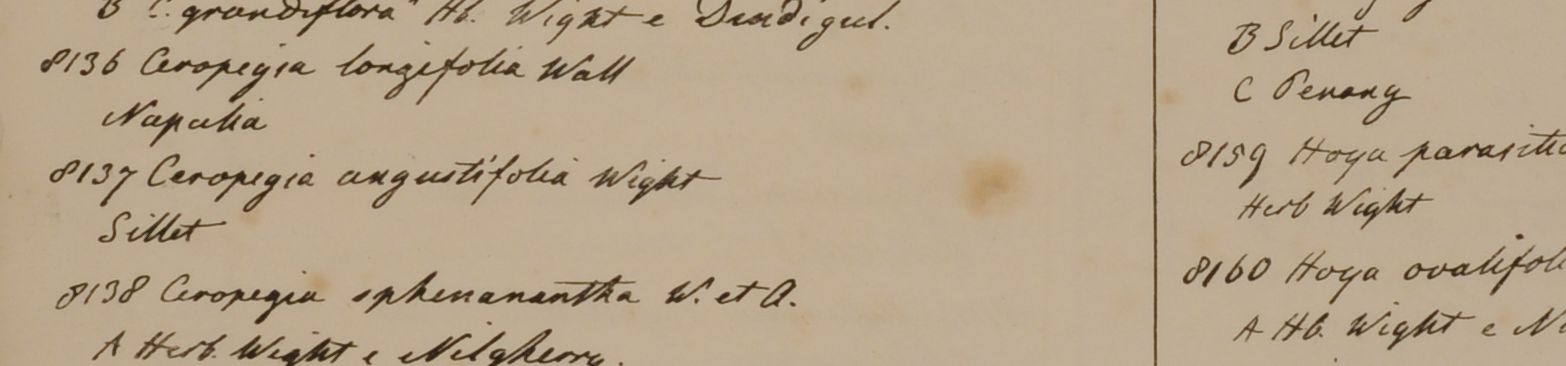 B "C. grandiflora" Hb. Wight e Dindigul.
8136 Ceropegia longifolia Wall
Napalia
8137 Ceropegia angustifolia Wight
Sillet
8138 Ceropegia sphenanantha W. et A.
A Herb. Wight e Nilgherry.
B Sillet
C Penang
8159 Hoya parasitic
Herb Wight
8160 Hoya ovalifol
A Hb. Wight e Ni